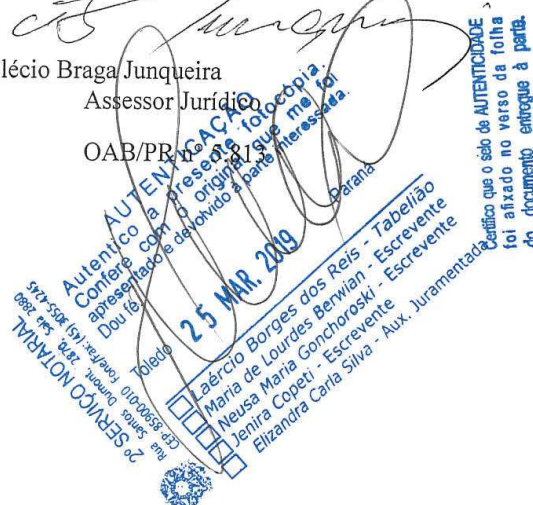 lécio Braga Junqueira
Assessor Jurídico
OAB/PR nº 5.813
AUTENTICAÇÃO
Autentico a presente fotocópia.
Confere com o original que me foi
apresentado e devolvido à parte interessada.
Dou fé.
Toledo 25 MAR. 2019 Paraná
Laércio Borges dos Reis - Tabelião
Maria de Lourdes Berwian - Escrevente
Neusa Maria Gonchoroski - Escrevente
Jenira Copeti - Escrevente
Elizandra Carla Silva - Aux. Juramentada
2º SERVIÇO NOTARIAL
Rua Santos Dumont, 2870, Sala 2880
CEP: 85900-010 Fone/Fax: (45) 3055-4245
Certifico que o selo de AUTENTICIDADE
foi afixado no verso da folha
do documento entregue à parte.